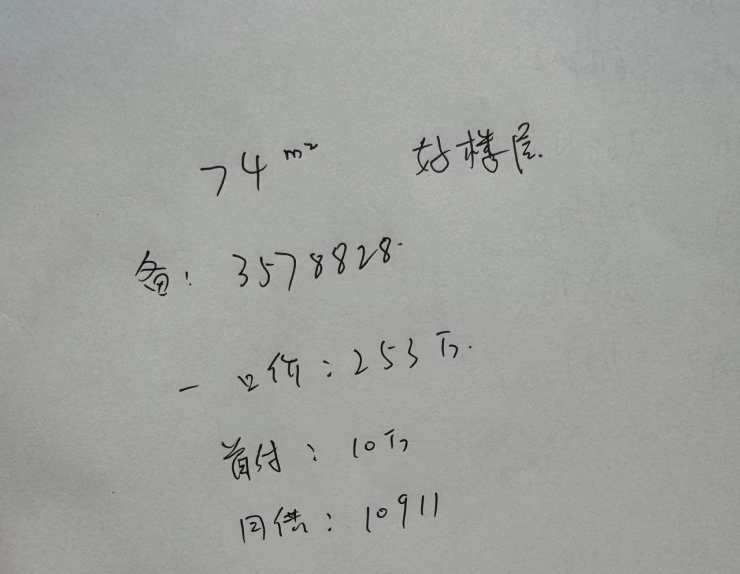 74m² 好楼层.
备: 3578828.
一口价: 253万.
首付: 10万
月供: 10911